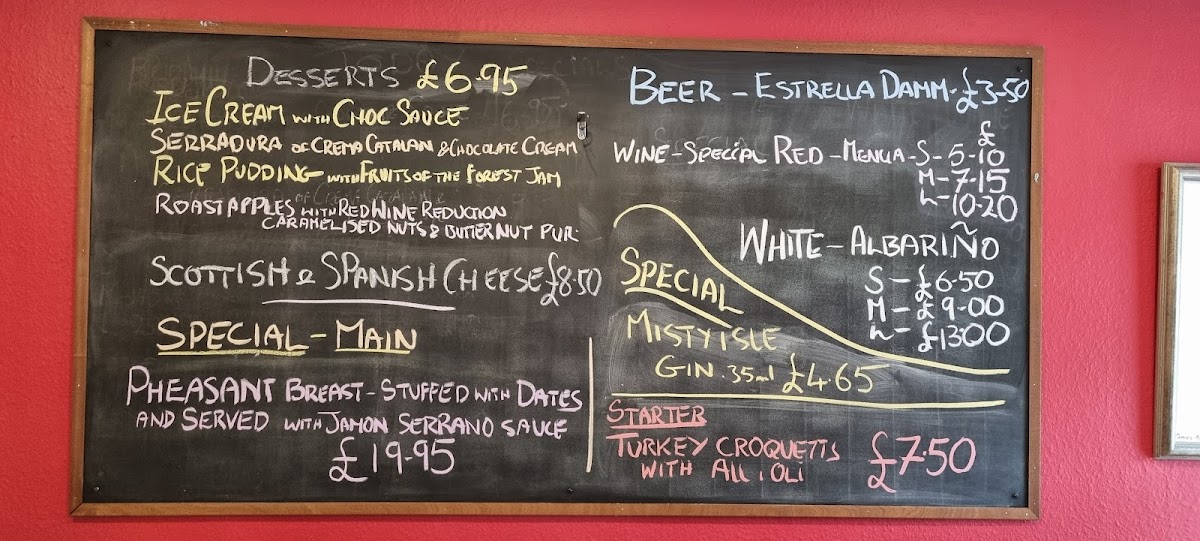 DESSERTS £6.95
ICE CREAM WITH CHOC SAUCE
SERRADURA OF CREMA CATALAN & CHOCOLATE CREAM
RICE PUDDING WITH FRUITS OF THE FOREST JAM
ROAST APPLES WITH RED WINE REDUCTION
CARAMELISED NUTS & BUTTERNUT PUR
SCOTTISH & SPANISH CHEESE £8.50
SPECIAL - MAIN
PHEASANT BREAST - STUFFED WITH DATES
AND SERVED WITH JAMON SERRANO SAUCE
£19.95
BEER - ESTRELLA DAMM - £3.50
£
WINE - SPECIAL RED - MENCIA - S - 5.10
M - 7.15
L - 10.20
WHITE - ALBARIÑO
S - £6.50
M - £9.00
L - £13.00
SPECIAL
MISTY ISLE
GIN . 35ml £4.65
STARTER
TURKEY CROQUETTS
WITH ALLIOLI
£7.50